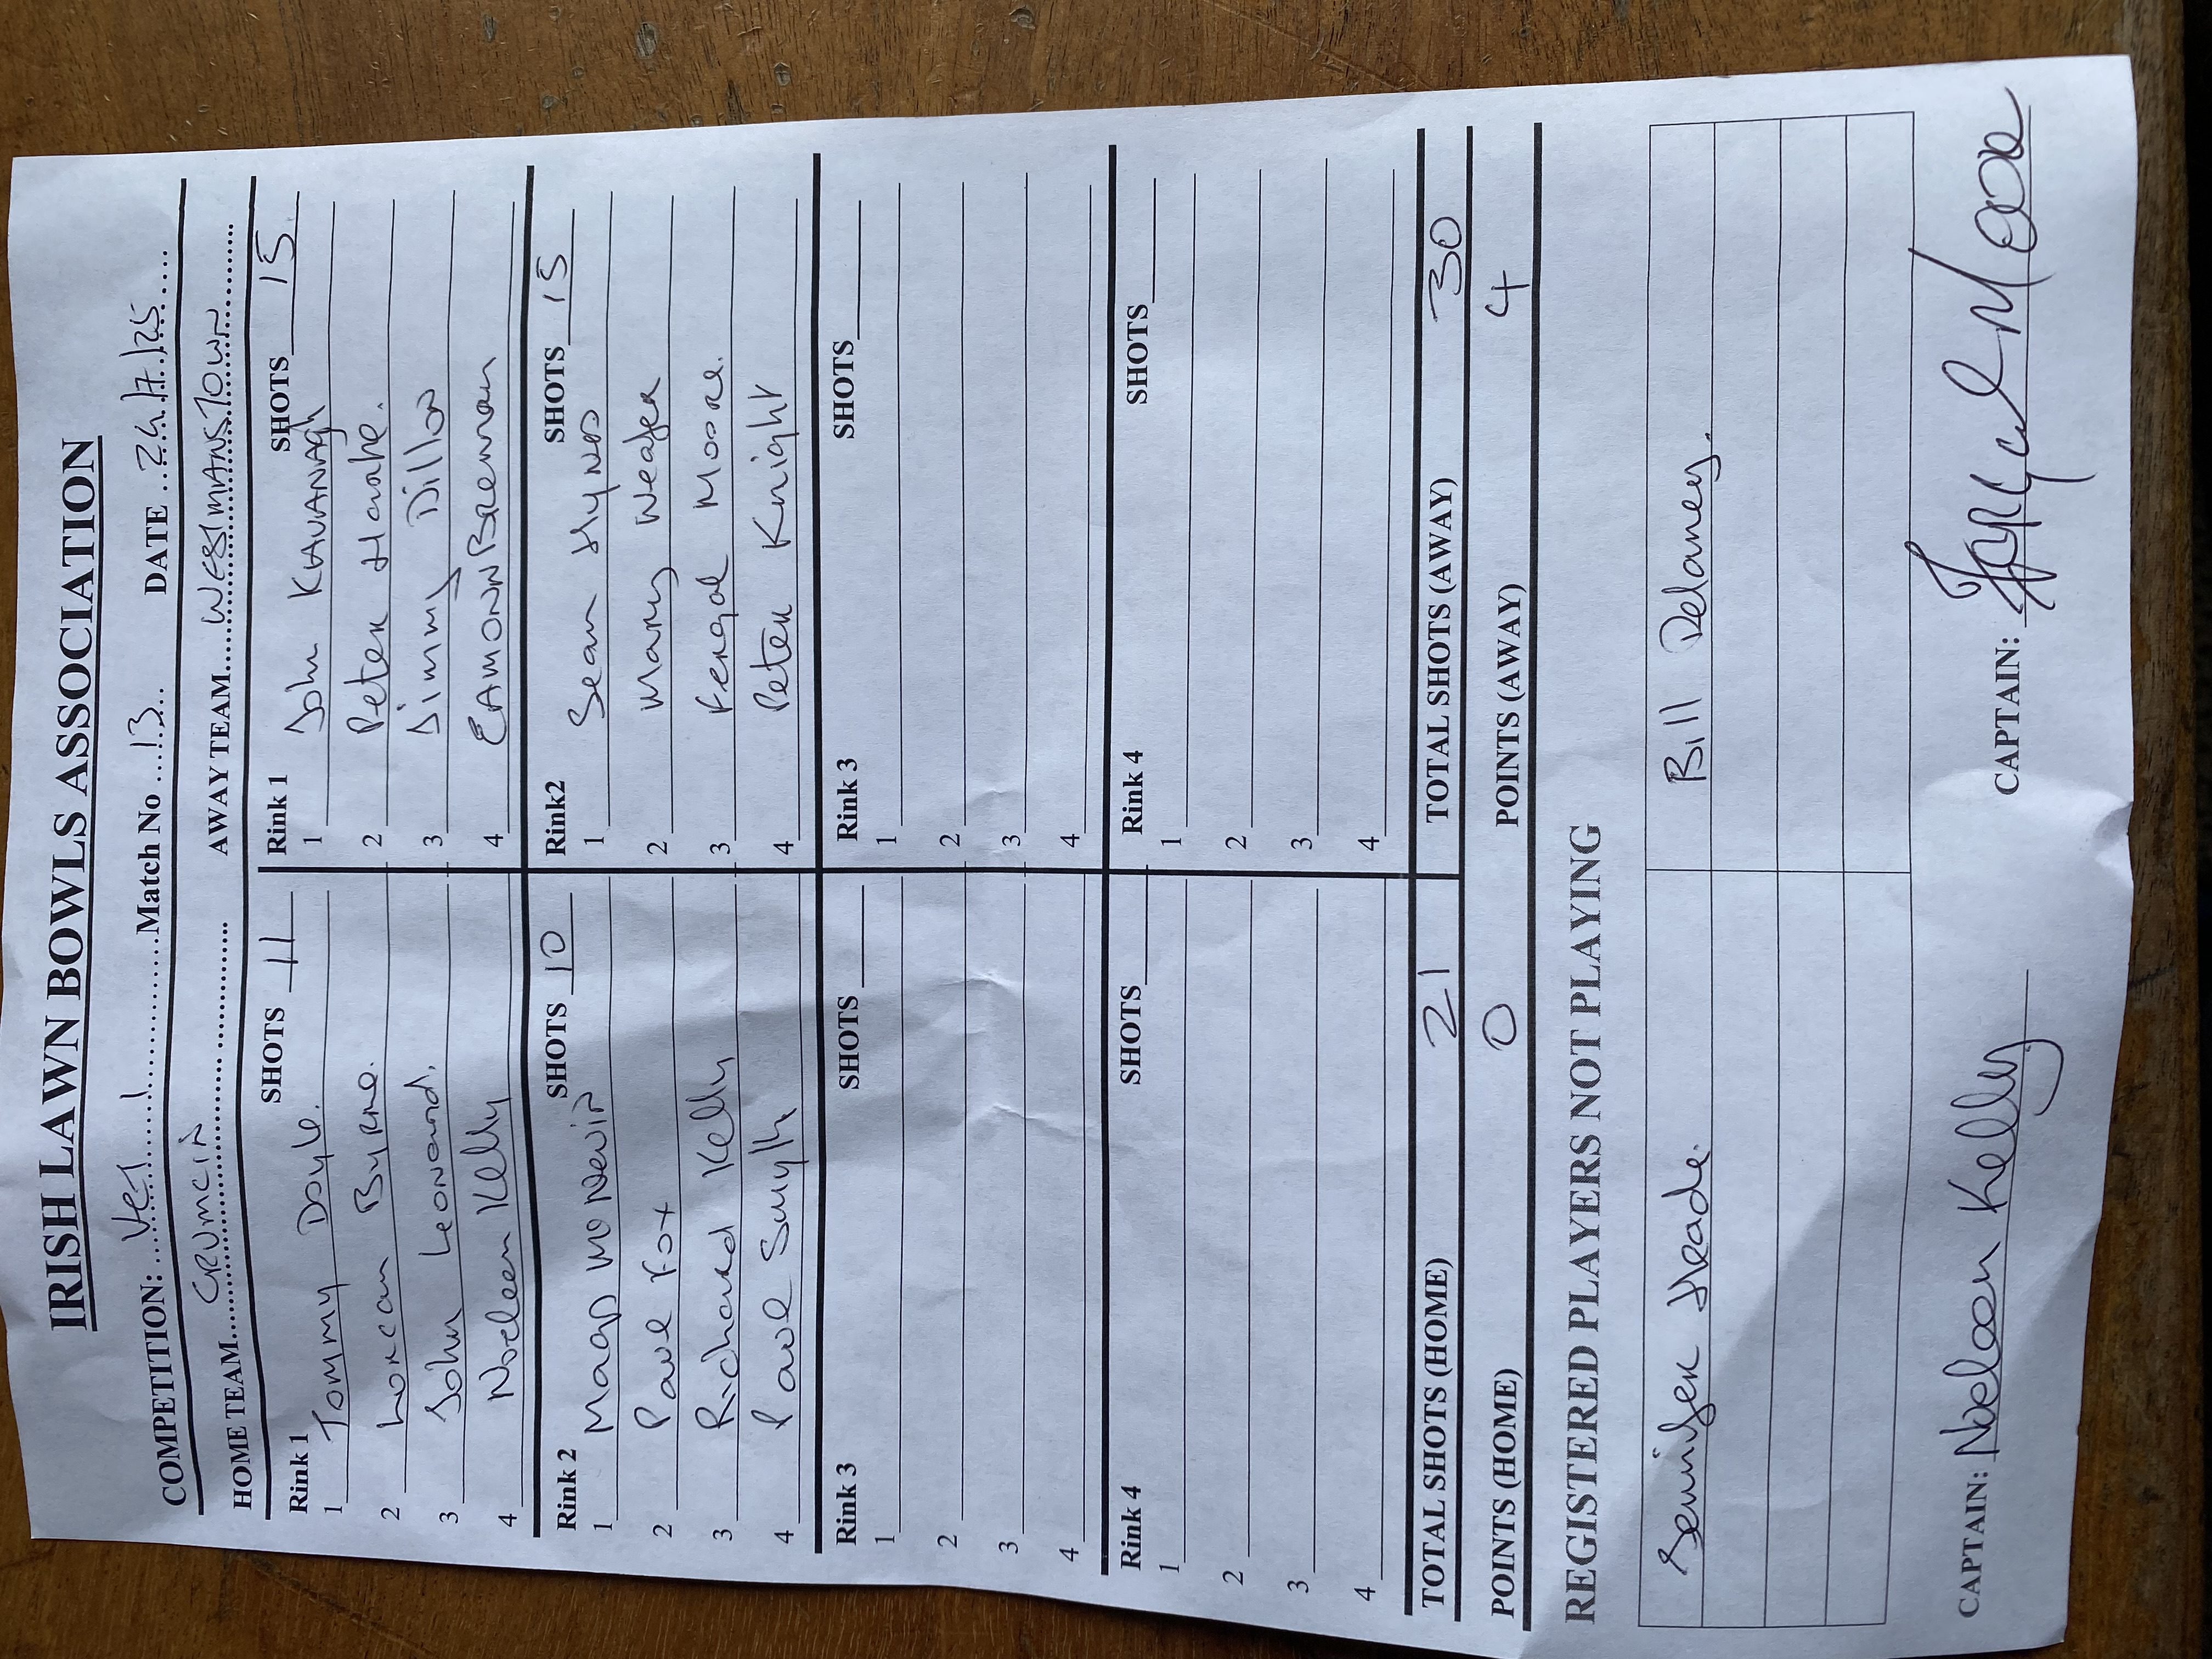 IRISH LAWN BOWLS ASSOCIATION
COMPETITION: Vet 1 Match No 13 DATE 24/7/25
HOME TEAM CRUMLIN AWAY TEAM WESTMANSTOWN
Rink 1 SHOTS 11 Rink 1 SHOTS 15
1 Tommy Doyle. 1 John KAVANAGH
2 Lorcan Byrne. 2 Peter
3 John Leonard. 3 Jimmy Dillon
4 Noeleen Kelly 4 EAMONN Brennan
Rink 2 SHOTS 10 Rink2 SHOTS 15
1 1 Sean Hynes
2 Paul Fox 2 Mary Weafer
3 Richard Kelly 3 Fergal Moore.
4 Paul Smyth 4 Peter Knight
Rink 3 SHOTS Rink 3 SHOTS
1 1
2 2
3 3
4 4
Rink 4 SHOTS Rink 4 SHOTS
1 1
2 2
3 3
4 4
TOTAL SHOTS (HOME) 21 TOTAL SHOTS (AWAY) 30
POINTS (HOME) 0 POINTS (AWAY) 4
REGISTERED PLAYERS NOT PLAYING
Jennifer Bill Delaney.
CAPTAIN: Noeleen Kelly CAPTAIN: Fergal Moore